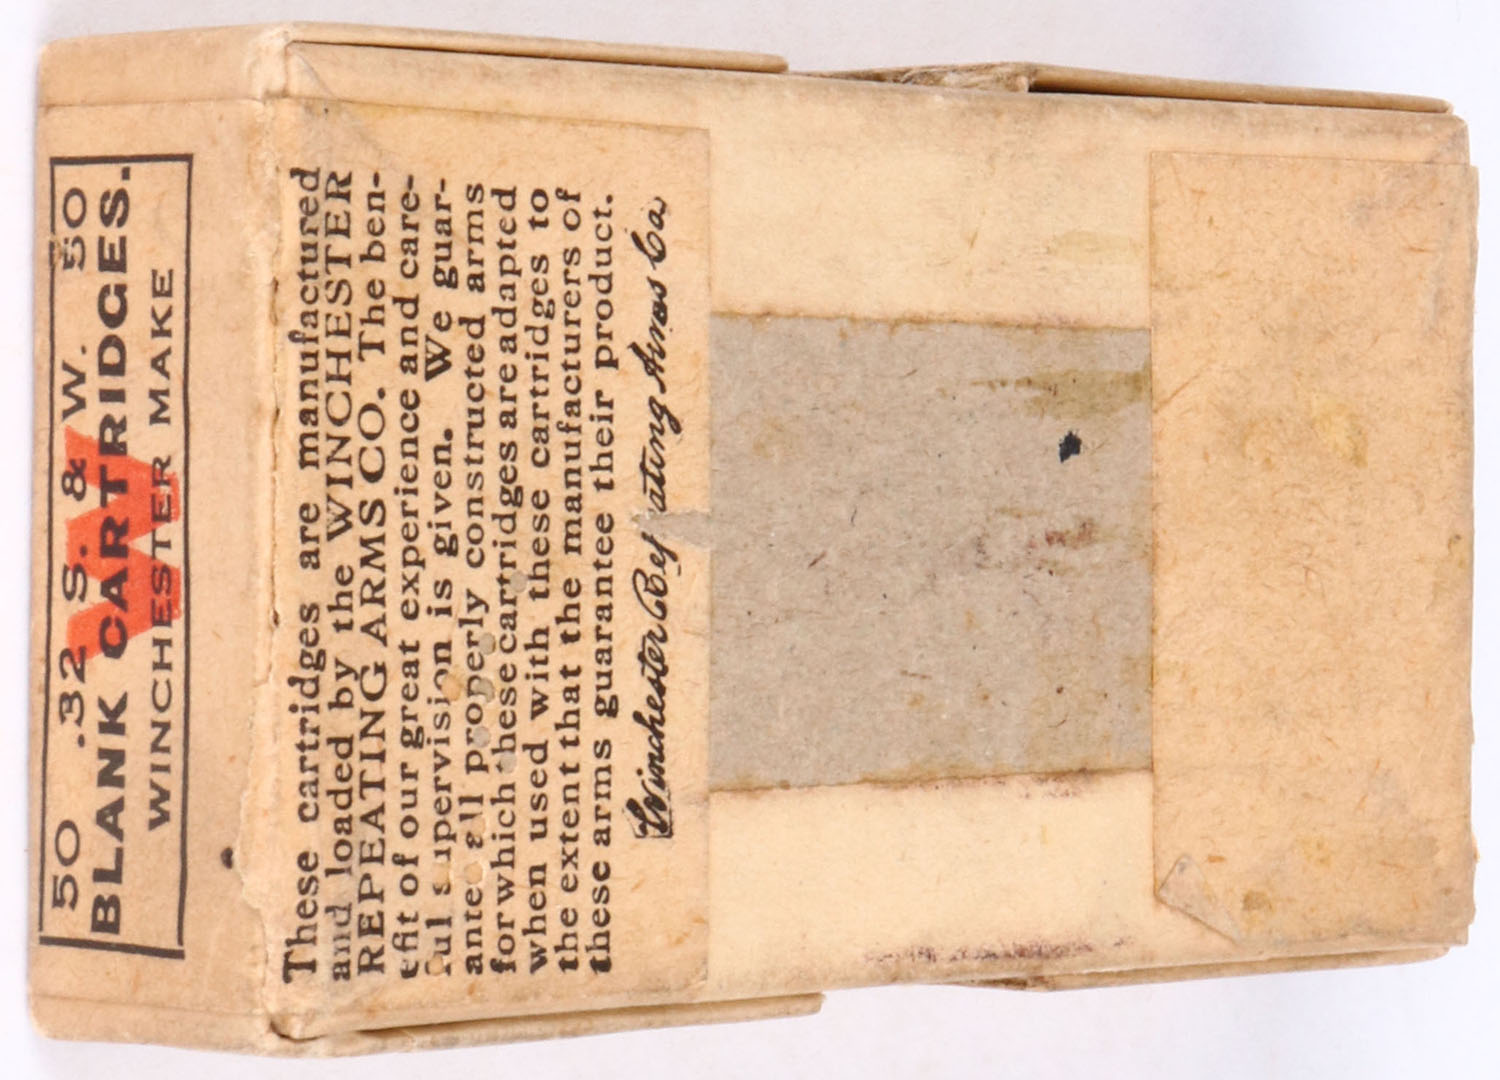 50 .32 S. & W. 50
BLANK CARTRIDGES.
WINCHESTER MAKE
W
These cartridges are manufactured
and loaded by the WINCHESTER
REPEATING ARMS CO. The ben-
efit of our great experience and care-
ful supervision is given. We guar-
antee all properly constructed arms
for which these cartridges are adapted
when used with these cartridges to
the extent that the manufacturers of
these arms guarantee their product.
Winchester Repeating Arms Co.